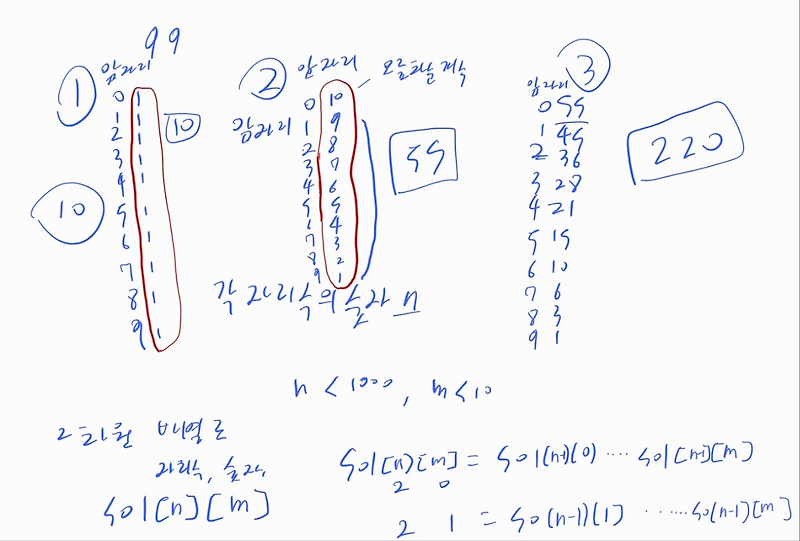 99
①
앞자리
0 1
1 1
2 1
3 1
4 1
5 1
6 1
7 1
8 1
9 1
10
10
②
앞자리
오르막날 개수
앞자리
0 10
1 9
2 8
3 7
4 6
5 5
6 4
7 3
8 2
9 1
55
각 자리수의 숫자 n
③
앞자리
0 55
1 45
2 36
3 28
4 21
5 15
6 10
7 6
8 3
9 1
220
n < 1000, m < 10
2차원 배열로
자릿수, 숫자,
sol[n][m]
sol[n][m] = sol(n-1)(0) ···· sol[n-1][m]
2 0
2 1 = so(n-1)(1) ······so(n-1)[m]